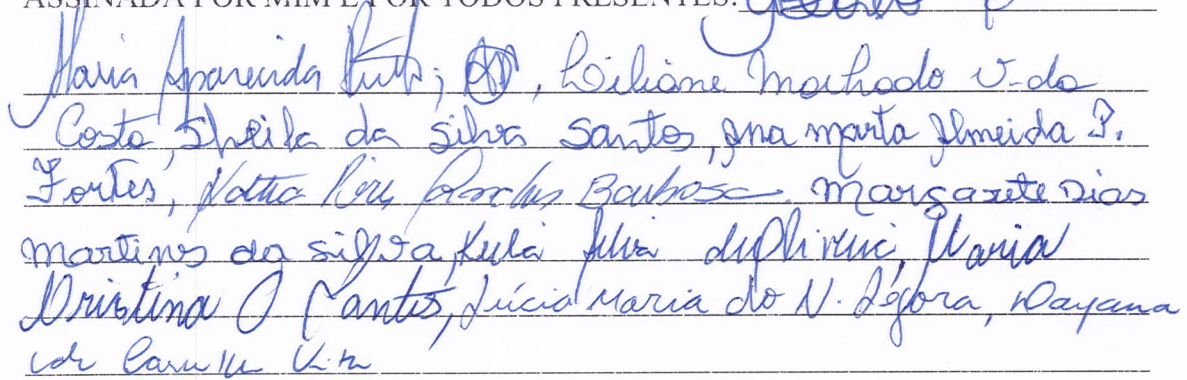 ASSINADA POR MIM E POR TODOS PRESENTES:
Maria Aparecida ; , Liliane Machado V. da
Costa, Sheila da Silva Santos, Ana Marta Almeida P.
Fortes, Barbosa Margarete Dias
Martins da Silva, Silva de Oliveira, Maria
Cristina O Santos, Lúcia Maria do N. Légora, Dayana